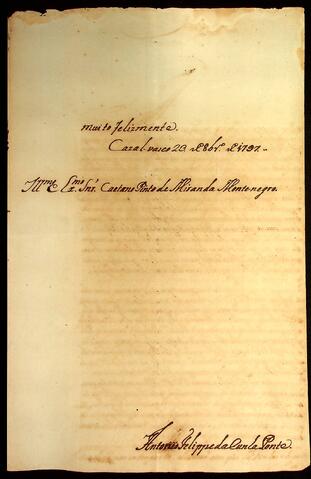 muito felizmente.
Cazal-vasco 20 de 8br.º de 1797.
Illmo. e Exmo. Snr. Caetano Pinto de Miranda Montenegro.
Antonio Felippe da Cunha Ponte.